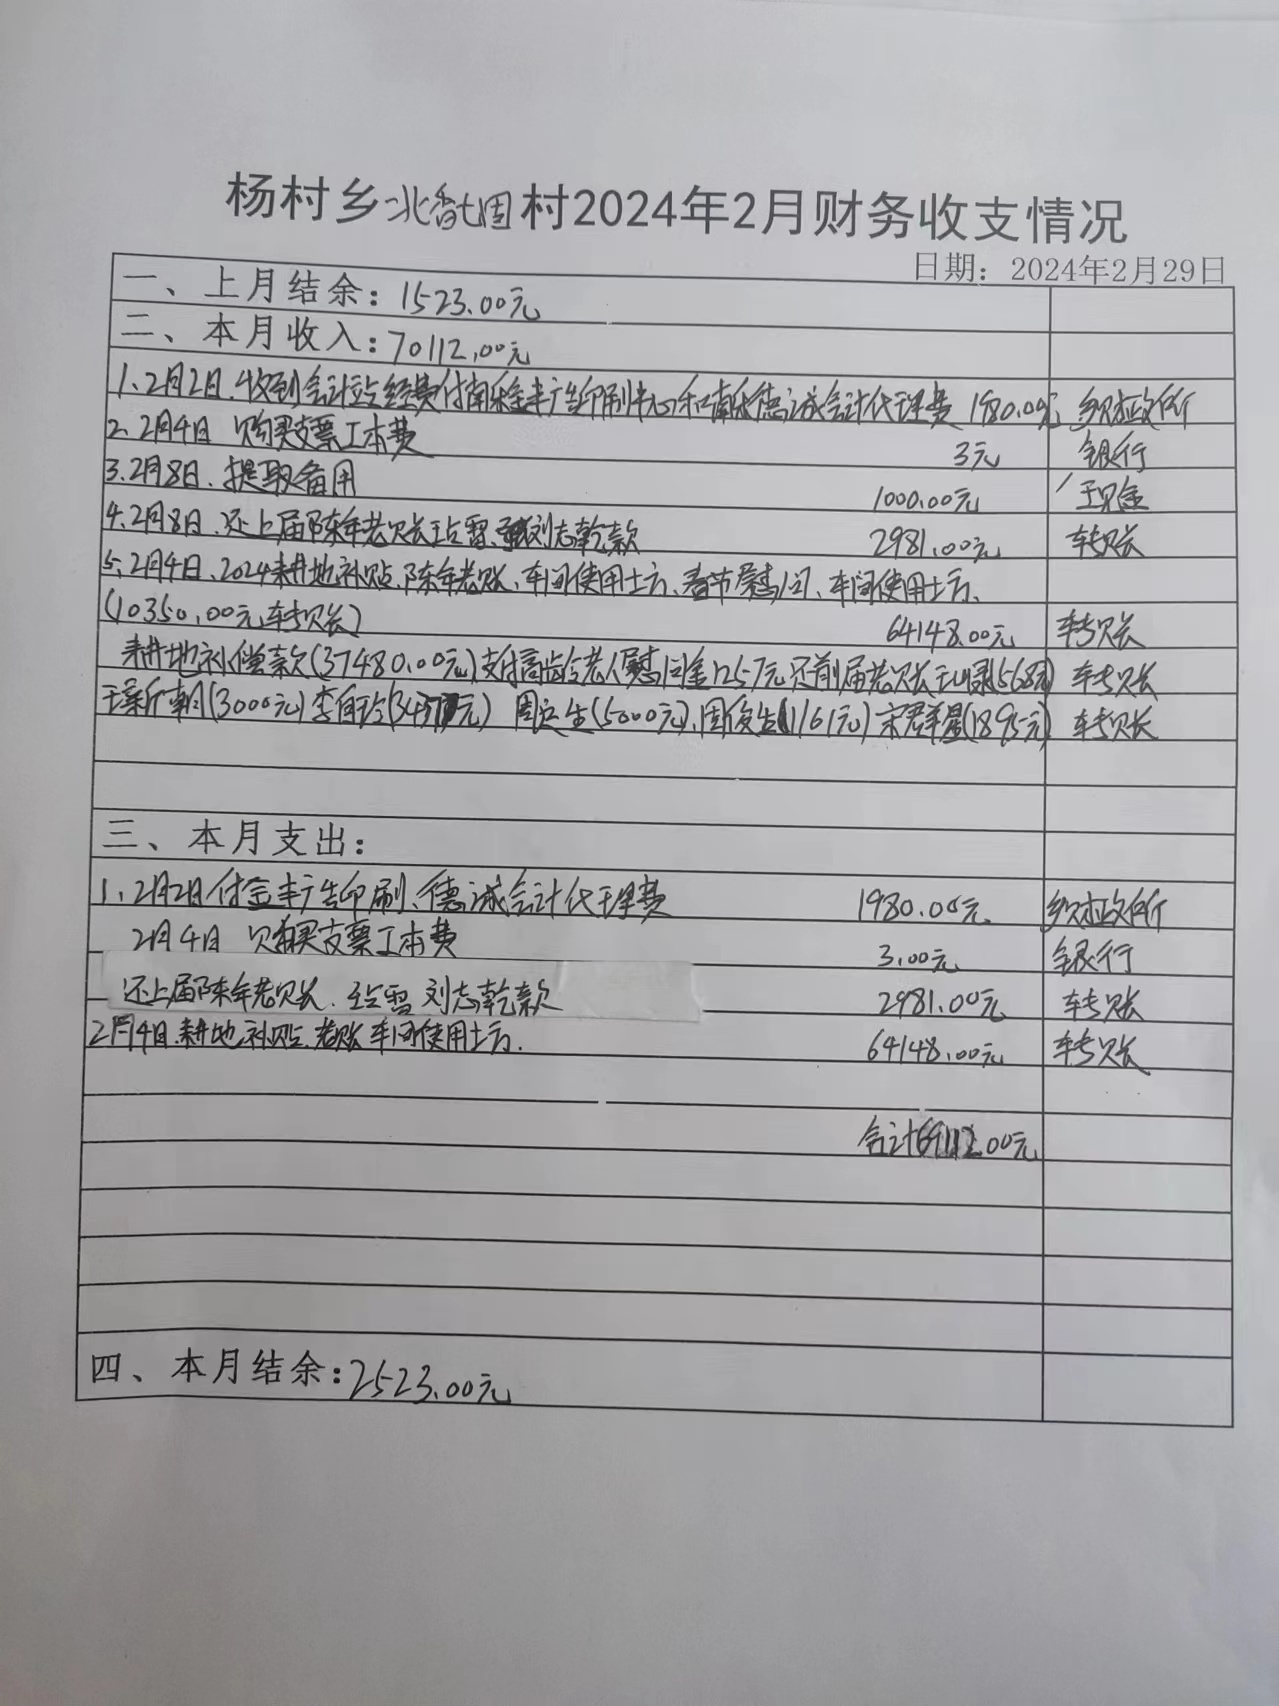 杨村乡北翟固村2024年2月财务收支情况
日期：2024年2月29日
一、上月结余：1523.00元
二、本月收入：70112.00元
1、2月2日.收到会计站经费付南乐金丰广告印刷中心和南乐德诚会计代理费 1980.00元 乡财政所
2、2月4日 购买支票工本费 3元 银行
3.2月8日.提取备用 1000.00元 现金
4.2月8日.还上届陈年老账 刘志乾款 2981.00元 转账
5、2月4日、2024耕地补贴、陈年老账、车间使用土方、春节慰问、车间使用土方、
(10350.00元转账) 64148.00元 转账
耕地补偿款(37480.00元)支付高龄老人慰问金1257元还前届老账 (568元) 转账
(3000元) 周 生(5000元)、周俊生(1161元)宋群星(1895元) 转账
三、本月支出：
1、2月2日付金丰广告印刷、德诚会计代理费 1980.00元 乡财政所
2月4日 购买支票工本费 3.00元 银行
还上届陈年老账. 刘志乾款 2981.00元 转账
2月4日.耕地补贴.老账 车间使用土方. 64148.00元 转账
合计69112.00元
四、本月结余：2523.00元